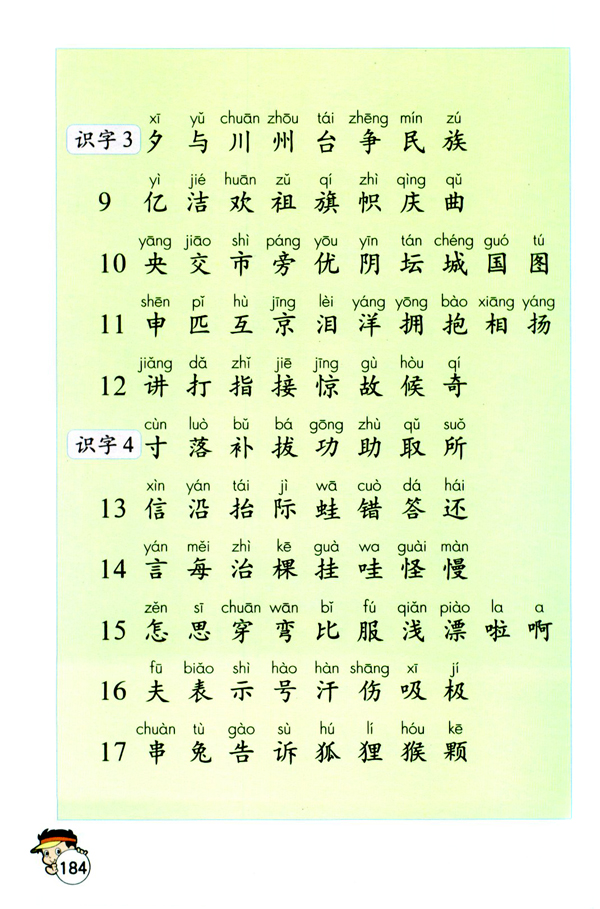 xī yǔ chuān zhōu tái zhēng mín zú
识字3 夕 与 川 州 台 争 民 族
yì jié huān zǔ qí zhì qìng qǔ
9 亿 洁 欢 祖 旗 帜 庆 曲
yāng jiāo shì páng yōu yīn tán chéng guó tú
10 央 交 市 旁 优 阴 坛 城 国 图
shēn pǐ hù jīng lèi yáng yōng bào xiāng yáng
11 申 匹 互 京 泪 洋 拥 抱 相 扬
jiǎng dǎ zhǐ jiē jīng gù hòu qí
12 讲 打 指 接 惊 故 候 奇
cùn luò bǔ bá gōng zhù qǔ suǒ
识字4 寸 落 补 拔 功 助 取 所
xìn yán tái jì wā cuò dá hái
13 信 沿 抬 际 蛙 错 答 还
yán měi zhì kē guà wa guài màn
14 言 每 治 棵 挂 哇 怪 慢
zěn sī chuān wān bǐ fú qiǎn piào la a
15 怎 思 穿 弯 比 服 浅 漂 啦 啊
fū biǎo shì hào hàn shāng xī jí
16 夫 表 示 号 汗 伤 吸 极
chuàn tù gào sù hú lí hóu kē
17 串 兔 告 诉 狐 狸 猴 颗
184